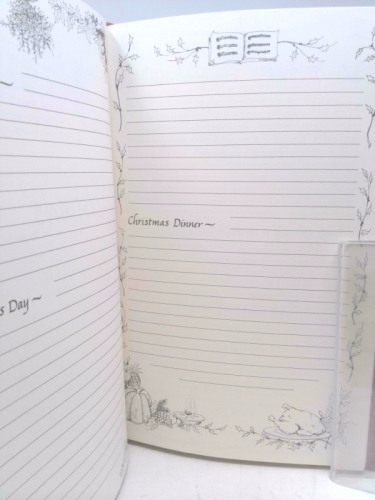 ~
s Day ~
Christmas Dinner ~